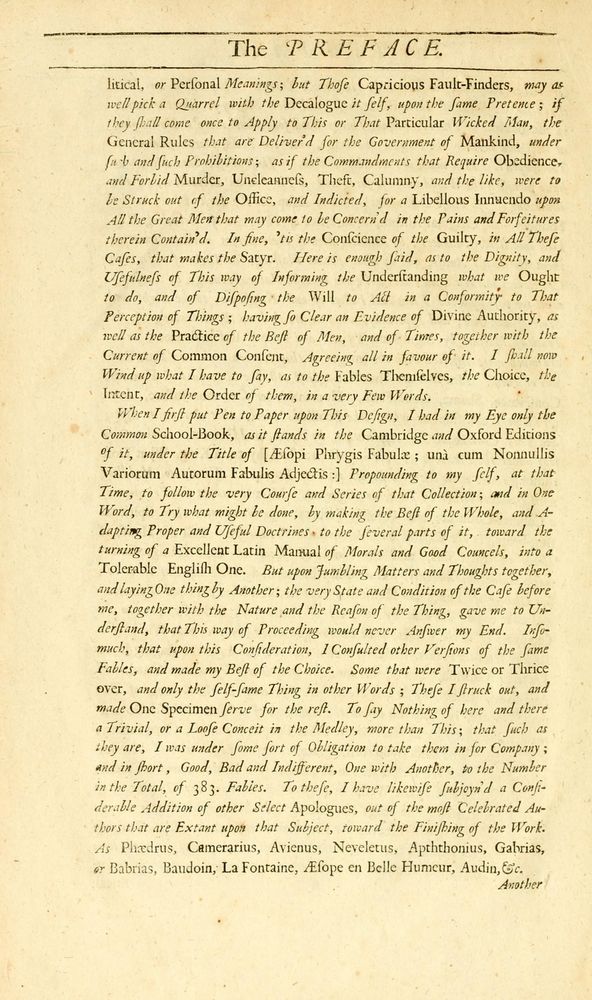 The PREFACE.
litical, or Perſonal Meanings; but Thoſe Capricious Fault-Finders, may as
well pick a Quarrel with the Decalogue it ſelf, upon the ſame Pretence; if
they ſhall come once to Apply to This or That Particular Wicked Man, the
General Rules that are Deliver'd for the Government of Mankind, under
ſuch and ſuch Prohibitions; as if the Commandments that Require Obedience,
and Forbid Murder, Uncleanneſs, Theft, Calumny, and the like, were to
be Struck out of the Office, and Indicted, for a Libellous Innuendo upon
All the Great Men that may come to be Concern'd in the Pains and Forfeitures
therein Contain'd. In fine, 'tis the Conſcience of the Guilty, in All Theſe
Caſes, that makes the Satyr. Here is enough ſaid, as to the Dignity, and
Uſefulneſs of This way of Informing the Underſtanding what we Ought
to do, and of Diſpoſing the Will to Act in a Conformity to That
Perception of Things; having ſo Clear an Evidence of Divine Authority, as
well as the Practice of the Beſt of Men, and of Times, together with the
Current of Common Conſent, Agreeing all in favour of it. I ſhall now
Wind up what I have to ſay, as to the Fables Themſelves, the Choice, the
Intent, and the Order of them, in a very Few Words.
When I firſt put Pen to Paper upon This Deſign, I had in my Eye only the
Common School-Book, as it ſtands in the Cambridge and Oxford Editions
of it, under the Title of [Æſopi Phrygis Fabulæ; unà cum Nonnullis
Variorum Autorum Fabulis Adjectis:] Propounding to my ſelf, at that
Time, to follow the very Courſe and Series of that Collection; and in One
Word, to Try what might be done, by making the Beſt of the Whole, and A-
dapting Proper and Uſeful Doctrines to the ſeveral parts of it, toward the
turning of a Excellent Latin Manual of Morals and Good Councels, into a
Tolerable Engliſh One. But upon Jumbling Matters and Thoughts together,
and laying One thing by Another; the very State and Condition of the Caſe before
me, together with the Nature and the Reaſon of the Thing, gave me to Un-
derſtand, that This way of Proceeding would never Anſwer my End. Inſo-
much, that upon this Conſideration, I Conſulted other Verſions of the ſame
Fables, and made my Beſt of the Choice. Some that were Twice or Thrice
over, and only the ſelf-ſame Thing in other Words; Theſe I ſtruck out, and
made One Specimen ſerve for the reſt. To ſay Nothing of here and there
a Trivial, or a Looſe Conceit in the Medley, more than This; that ſuch as
they are, I was under ſome ſort of Obligation to take them in for Company;
and in ſhort, Good, Bad and Indifferent, One with Another, to the Number
in the Total, of 383. Fables. To theſe, I have likewiſe ſubjoyn'd a Conſi-
derable Addition of other Select Apologues, out of the moſt Celebrated Au-
thors that are Extant upon that Subject, toward the Finiſhing of the Work.
As Phædrus, Camerarius, Avienus, Neveletus, Apththonius, Gabrias,
or Babrias, Baudoin, La Fontaine, Æſope en Belle Humeur, Audin, &c.
Another